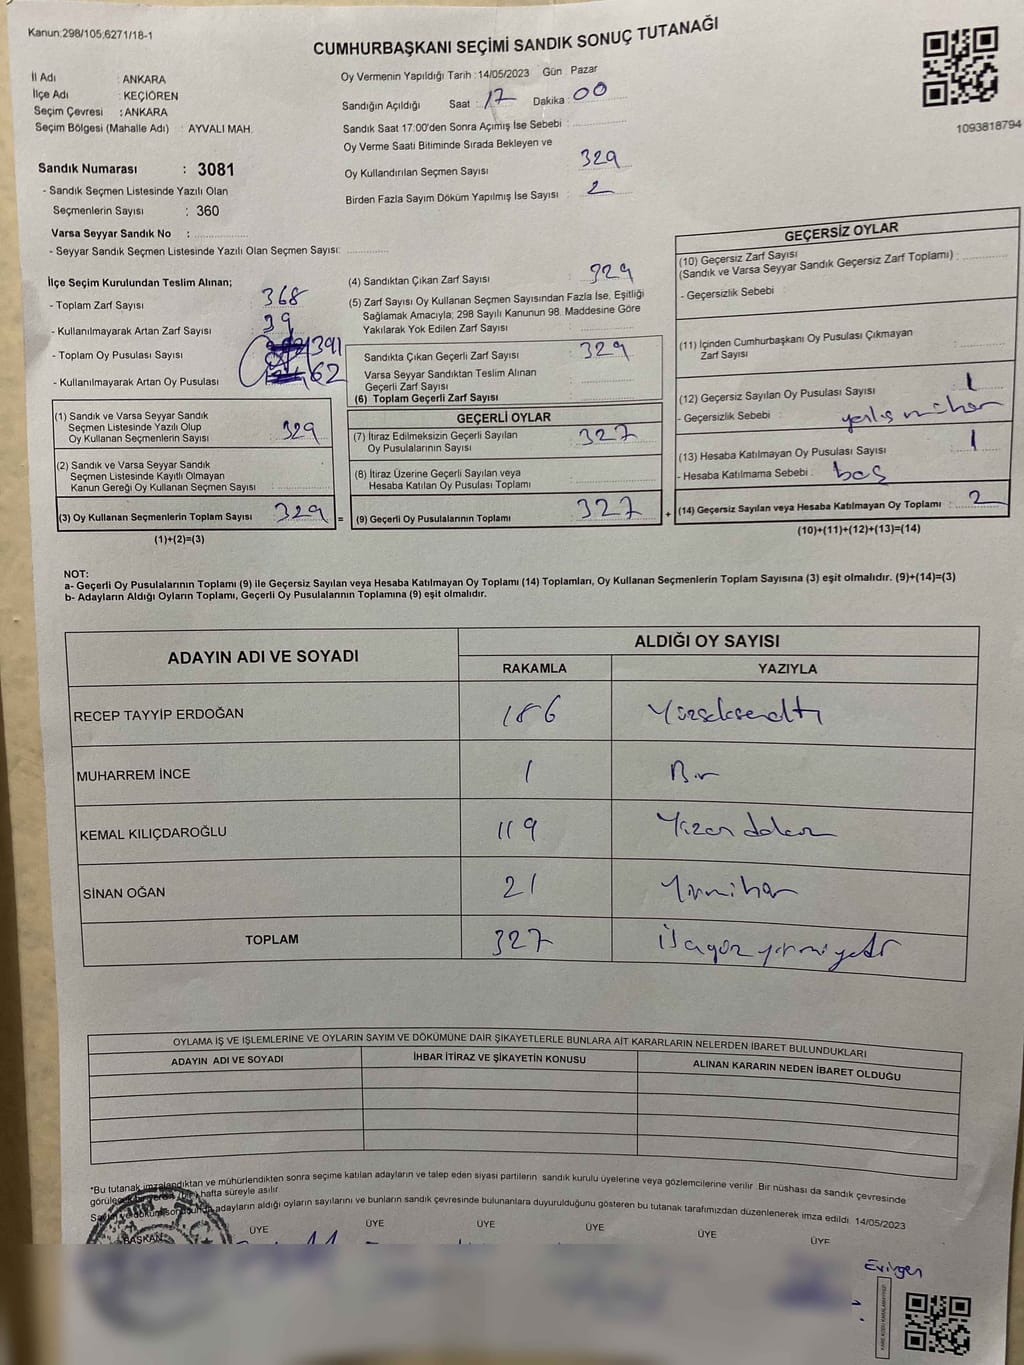 Kanun:298/105,6271/18-1
CUMHURBAŞKANI SEÇİMİ SANDIK SONUÇ TUTANAĞI
1093818794
İl Adı : ANKARA
İlçe Adı : KEÇİÖREN
Seçim Çevresi : ANKARA
Seçim Bölgesi (Mahalle Adı) : AYVALI MAH.
Oy Vermenin Yapıldığı Tarih : 14/05/2023 Gün : Pazar
Sandığın Açıldığı Saat : 17 Dakika : 00
Sandık Saat 17:00'den Sonra Açımış İse Sebebi :
Oy Verme Saati Bitiminde Sırada Bekleyen ve
Oy Kullandırılan Seçmen Sayısı 329
Birden Fazla Sayım Döküm Yapılmış İse Sayısı : 2
Sandık Numarası : 3081
- Sandık Seçmen Listesinde Yazılı Olan
Seçmenlerin Sayısı : 360
Varsa Seyyar Sandık No :
- Seyyar Sandık Seçmen Listesinde Yazılı Olan Seçmen Sayısı:
İlçe Seçim Kurulundan Teslim Alınan;
- Toplam Zarf Sayısı 368
- Kullanılmayarak Artan Zarf Sayısı 39
- Toplam Oy Pusulası Sayısı 391
- Kullanılmayarak Artan Oy Pusulası 62
(1) Sandık ve Varsa Seyyar Sandık
Seçmen Listesinde Yazılı Olup
Oy Kullanan Seçmenlerin Sayısı 329
(2) Sandık ve Varsa Seyyar Sandık
Seçmen Listesinde Kayıtlı Olmayan
Kanun Gereği Oy Kullanan Seçmen Sayısı
(3) Oy Kullanan Seçmenlerin Toplam Sayısı 329 =
(1)+(2)=(3)
(4) Sandıktan Çıkan Zarf Sayısı 329
(5) Zarf Sayısı Oy Kullanan Seçmen Sayısından Fazla İse, Eşitliği
Sağlamak Amacıyla; 298 Sayılı Kanunun 98. Maddesine Göre
Yakılarak Yok Edilen Zarf Sayısı
Sandıkta Çıkan Geçerli Zarf Sayısı : 329
Varsa Seyyar Sandıktan Teslim Alınan
Geçerli Zarf Sayısı
(6) Toplam Geçerli Zarf Sayısı
GEÇERLİ OYLAR
(7) İtiraz Edilmeksizin Geçerli Sayılan
Oy Pusulalarının Sayısı : 327
(8) İtiraz Üzerine Geçerli Sayılan veya
Hesaba Katılan Oy Pusulası Toplamı
(9) Geçerli Oy Pusulalarının Toplamı : 327 +
GEÇERSİZ OYLAR
(10) Geçersiz Zarf Sayısı
(Sandık ve Varsa Seyyar Sandık Geçersiz Zarf Toplamı) :
- Geçersizlik Sebebi :
(11) İçinden Cumhurbaşkanı Oy Pusulası Çıkmayan
Zarf Sayısı
(12) Geçersiz Sayılan Oy Pusulası Sayısı : 1
- Geçersizlik Sebebi :
(13) Hesaba Katılmayan Oy Pusulası Sayısı 1
- Hesaba Katılmama Sebebi : boş
(14) Geçersiz Sayılan veya Hesaba Katılmayan Oy Toplamı : 2
(10)+(11)+(12)+(13)=(14)
NOT:
a- Geçerli Oy Pusulalarının Toplamı (9) ile Geçersiz Sayılan veya Hesaba Katılmayan Oy Toplamı (14) Toplamları, Oy Kullanan Seçmenlerin Toplam Sayısına (3) eşit olmalıdır. (9)+(14)=(3)
b- Adayların Aldığı Oyların Toplamı, Geçerli Oy Pusulalarının Toplamına (9) eşit olmalıdır.
ADAYIN ADI VE SOYADI
ALDIĞI OY SAYISI
RAKAMLA YAZIYLA
RECEP TAYYİP ERDOĞAN 186 Yüzseksenaltı
MUHARREM İNCE 1 Bir
KEMAL KILIÇDAROĞLU 119 Yüzondokuz
SİNAN OĞAN 21 Yirmibir
TOPLAM 327 üçyüzyirmiyedi
OYLAMA İŞ VE İŞLEMLERİNE VE OYLARIN SAYIM VE DÖKÜMÜNE DAİR ŞİKAYETLERLE BUNLARA AİT KARARLARIN NELERDEN İBARET BULUNDUKLARI
ADAYIN ADI VE SOYADI İHBAR İTİRAZ VE ŞİKAYETİN KONUSU ALINAN KARARIN NEDEN İBARET OLDUĞU
*Bu tutanak imzalandıktan ve mühürlendikten sonra seçime katılan adayların ve talep eden siyasi partilerin sandık kurulu üyelerine veya gözlemcilerine verilir. Bir nüshası da sandık çevresinde
hafta süreyle asılır
adayların aldığı oyların sayılarını ve bunların sandık çevresinde bulunanlara duyurulduğunu gösteren bu tutanak tarafımızdan düzenlenerek imza edildi. 14/05/2023
BAŞKAN ÜYE ÜYE ÜYE ÜYE ÜYE ÜYE